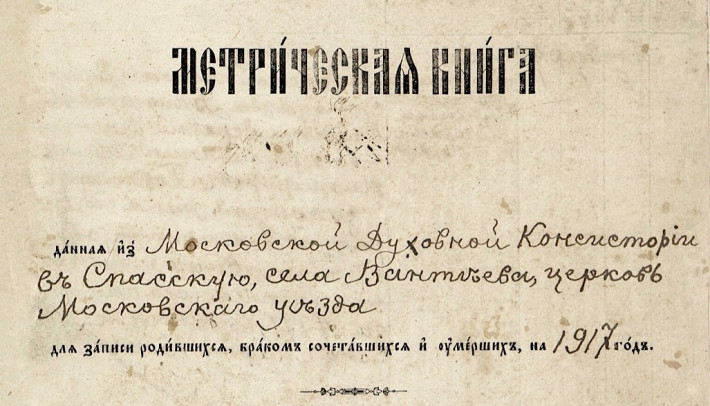 МЕТРИ́ЧЕСКАѦ КНИ́ГА
да́нная и҆з̾ Московской Духовной Консисторіи
въ Спасскую, села Вантѣева, церковь
Московскаго уѣзда
для за́писи роди́вшихся, бра́комъ сочета́вшихся и҆ оу҆ме́ршихъ, на 1917 го́дъ.